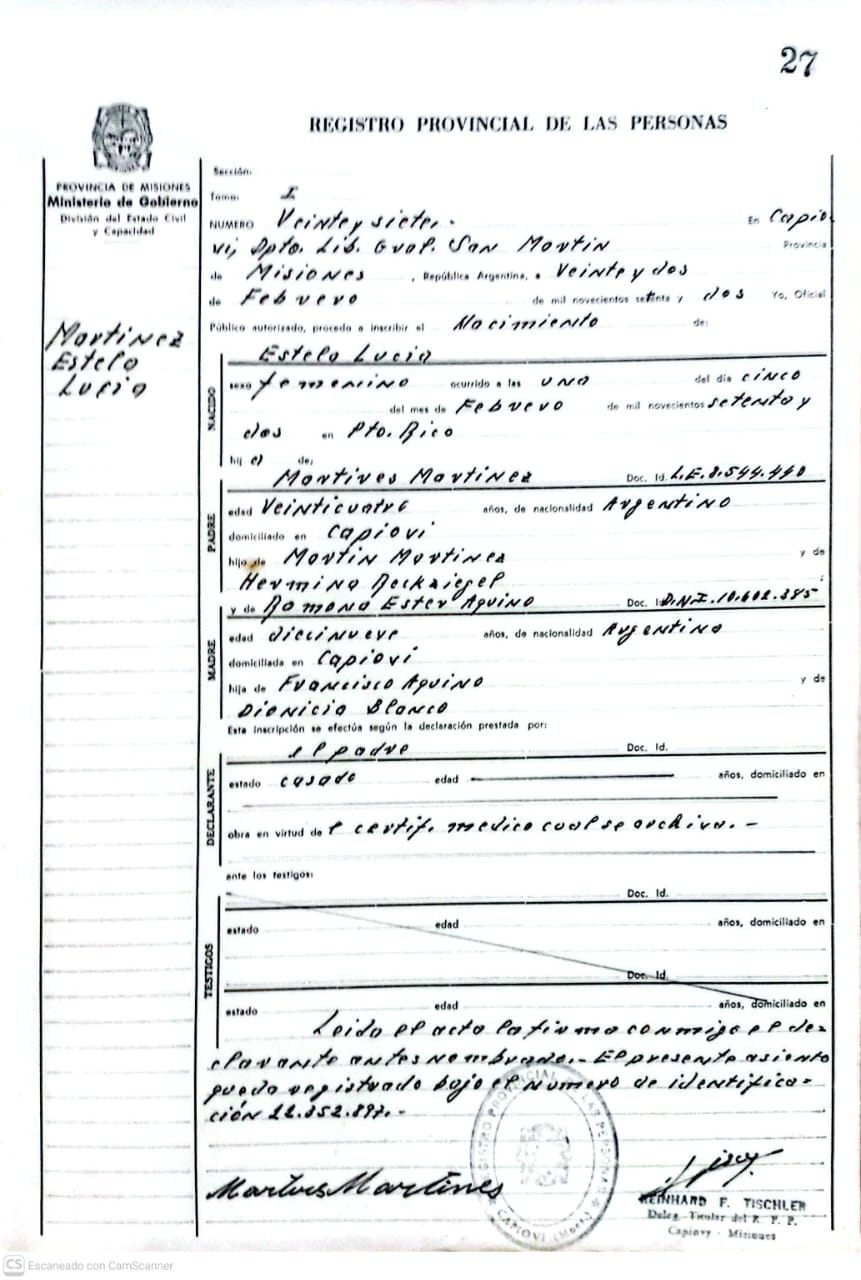 27
REGISTRO PROVINCIAL DE LAS PERSONAS
PROVINCIA DE MISIONES
Ministerio de Gobierno
División del Estado Civil
y Capacidad
Martinez
Estela
Lucia
Sección:
Tomo: I
NUMERO Veinte y siete.- En Capio-
vi, Dpto. Lib. Gral. San Martin Provincia
de Misiones , República Argentina, a Veinte y dos
de Febrero de mil novecientos setenta y dos Yo, Oficial
Público autorizado, procedo a inscribir el Nacimiento de:
NACIDO
Estela Lucia
sexo femenino ocurrido a las una del día cinco
del mes de Febrero de mil novecientos setenta y
dos en Pto. Rico
hij a de:
PADRE
Martires Martinez Doc. Id. L.E. 8.544.440
edad Veinticuatro años, de nacionalidad Argentina
domiciliado en Capiovi
hijo de Martin Martinez y de
Hermina Reckziegel
MADRE
y de Ramona Ester Aquino Doc. Id. D.N.I. 10.602.385
edad diecinueve años, de nacionalidad Argentina
domiciliada en Capiovi
hija de Francisco Aquino y de
Dionicia Blanco
Esta inscripción se efectúa según la declaración prestada por:
DECLARANTE
el padre Doc. Id.
estado casado edad años, domiciliado en
obra en virtud de l certif. medico cual se archiva.-
ante los testigos:
TESTIGOS
Doc. Id.
estado edad años, domiciliado en
Doc. Id.
estado edad años, domiciliado en
Leida el acta la firma conmigo el de-
clarante antes nombrado.- El presente asiento
queda registrado bajo el número de identifica-
ción 22.352.897.-
REGISTRO PROVINCIAL DE LAS PERSONAS
CAPIOVI (Mnes.)
Martires Martines
REINHARD F. TISCHLER
Deleg. Titular del R. P. P.
Capiovy - Misiones
CS Escaneado con CamScanner